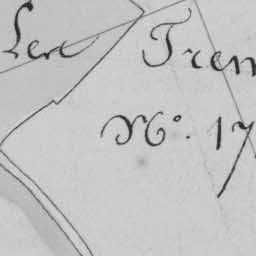 Lere Trem
No. 17